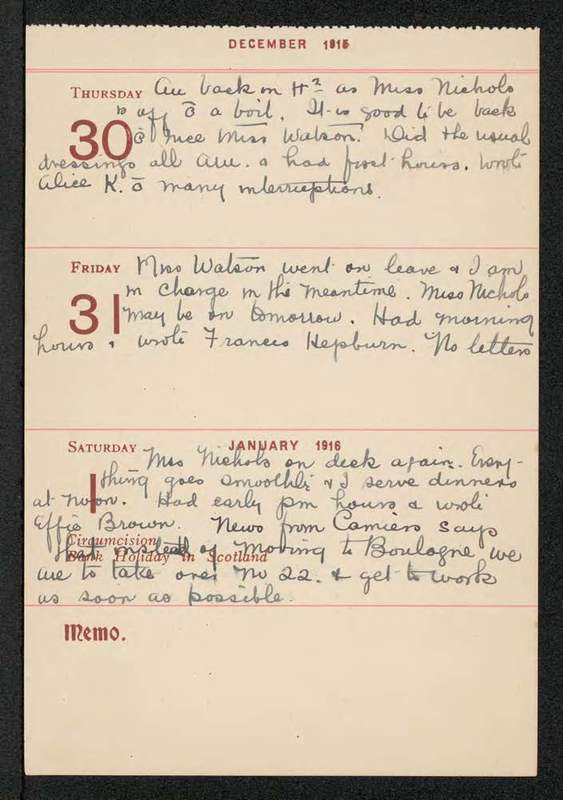 DECEMBER 1915
THURSDAY Am back on H2 as Miss Nichols
30 is off c̄ a boil. It is good to be back
c̄ nice Miss Watson. Did the usual
dressings all a.m. & had first hours. Wrote
Alice K. c̄ many interruptions.
FRIDAY Miss Watson went on leave & I am
31 in charge in the meantime. Miss Nichols
may be on tomorrow. Had morning
hours & wrote Frances Hepburn. No letters
SATURDAY JANUARY 1916
Miss Nichols on deck again. Every-
1 thing goes smoothly & I serve dinners
at noon. Had early pm hours & wrote
Effie Brown. News from Camiers says
Circumcision
that instead of moving to Boulogne we
Bank Holiday in Scotland
are to take over No 22. & get to work
as soon as possible.
Memo.